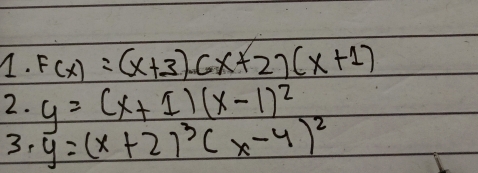 1. F(x) = (x+3)(x+2)(x+1)
2. y = (x+1)(x-1)²
3. y=(x+2)³(x-4)²